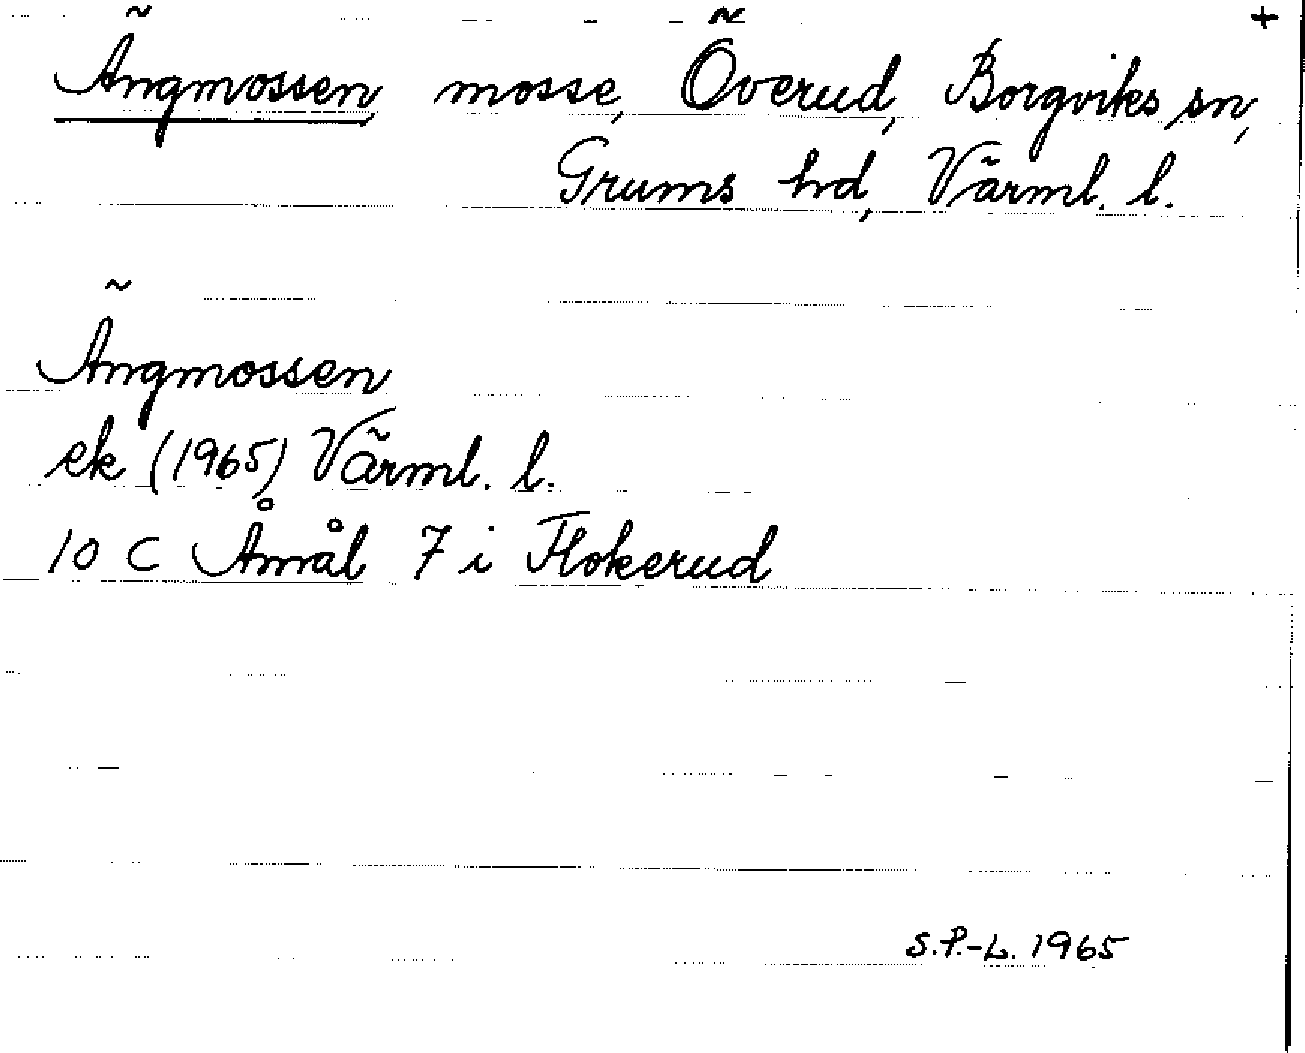 +
Ängmossen mosse, Överud, Borgviks sn,
Grums hd, Värml. l.
Ängmossen
ek (1965) Värml. l.
10 C Åmål 7 i Flokerud
S.P.-L. 1965